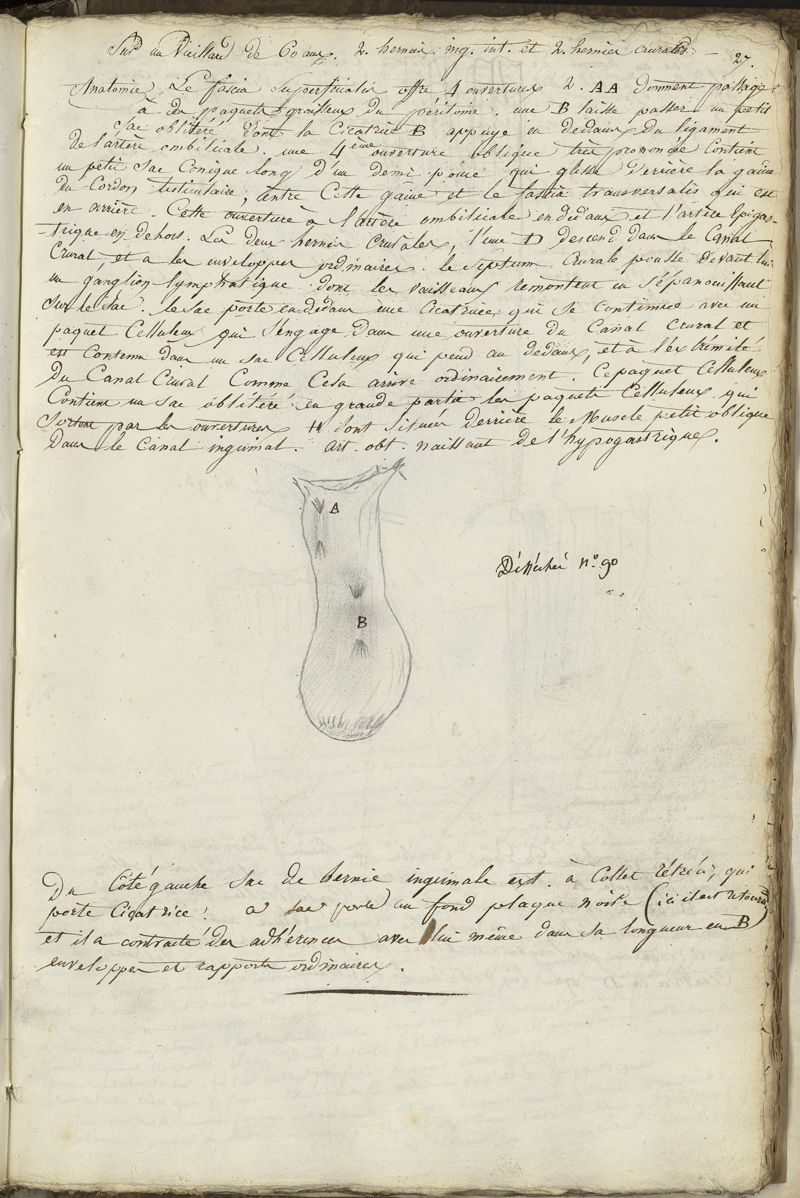 Sur un Vieillard de 60 ans. 2. hernies ing. int. et 2. hernies crurales. – 27.
Anatomie. Le fascia superficialis offre 4 ouvertures 2. AA donnent passage
à des paquets graisseux du péritoine. une B laisse passer un petit
sac oblitéré dont la Cicatrice B appuye en dedans du ligament
de l'artère ombilicale. une 4eme ouverture oblique très prononcée Contient
un petit sac Conique long d'un demi pouce qui glisse derrière la gaine
du Cordon testiculaire, entre Cette gaine et le fascia transversalis qui est
en arrière. Cette ouverture a l'artère ombilicale en dedans et l'artère Epigas
-trique en dehors. Les deux hernies Crurales, l'une D descend dans le Canal
Crural, et a les enveloppes ordinaires. le septum Crurale pousse devant lui
un ganglion lymphatique dont les vaisseaux remontent en s'épanouissant
sur le sac. le sac porte en dedans une cicatrice, qui se continue avec un
paquet Celluleux qui s'engage dans une ouverture du Canal Crural et
est Contenu dans un sac Celluleux qui pend au dedans, et à l'extrémité
Du Canal Crural Comme Cela arrive ordinairement. Ce paquet Celluleux
Contient un sac oblitéré en grande partie les paquets Celluleux qui
sortent par les ouvertures sont situées derrière le Muscle petit oblique
Dans le Canal inguinal. art. obt. naissant de l'hypogastrique.
A
Désséché n.o 90
B
Du Côté gauche sac de hernie inguinale ext. à Collet rétréci, qui
porte Cicatrice. a sac porte un fond plaque noire (ici il est retourné)
et il a contracté des adhérences avec lui même dans sa longueur en B
enveloppes et rapports ordinaires.